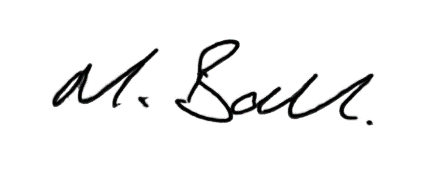 M. Ball.